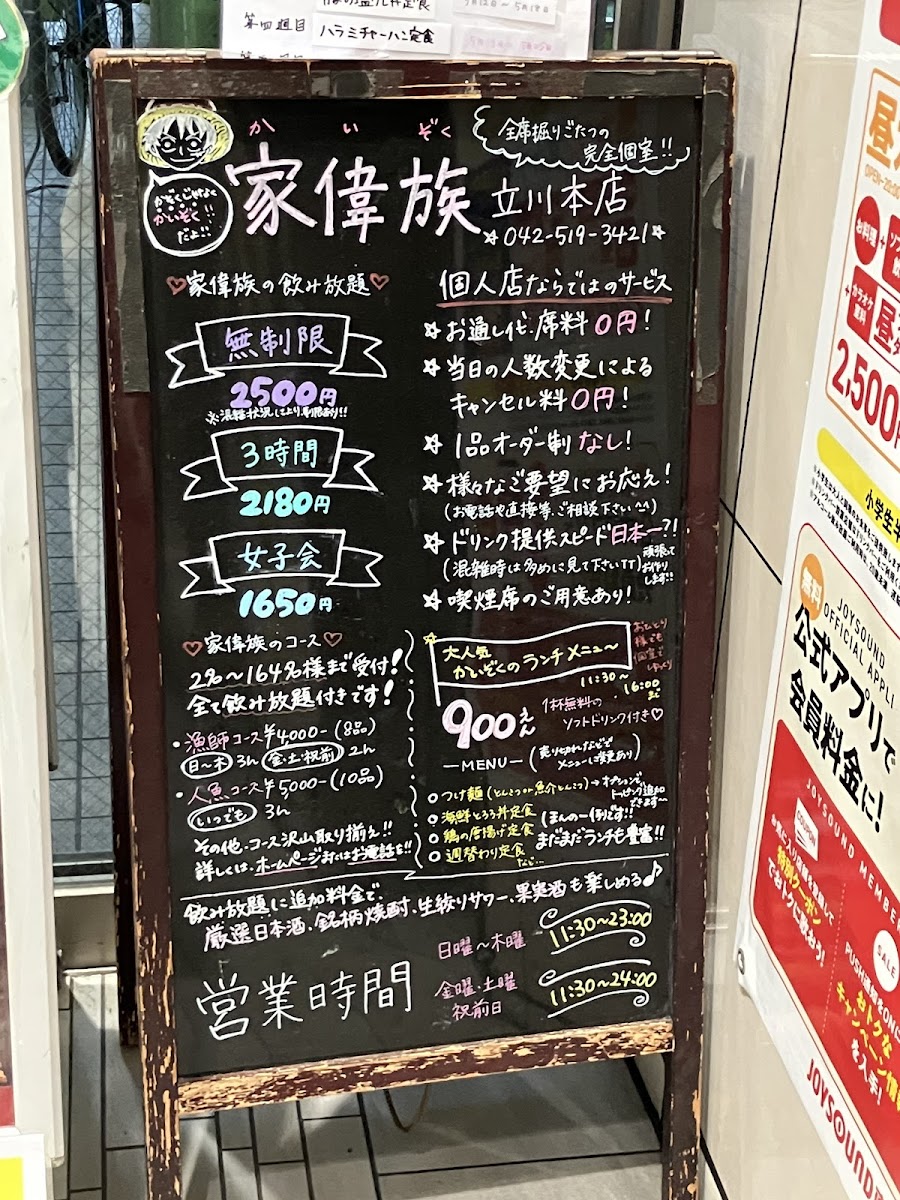 第四週目
ハラミチャーハン定食
かいぞく
家偉族
立川本店
☆042-519-3421☆
全席掘りごたつの
完全個室!!
かぞくじゃなく
かいぞく!!
だよ!!
♡家偉族の飲み放題♡
無制限
2500円
3時間
2180円
女子会
1650円
個人店ならではのサービス
☆お通し代・席料0円!
☆当日の人数変更による
キャンセル料0円!
☆1品オーダー制なし!
☆様々なご要望にお応え!
(お電話や直接等、ご相談下さい^^)
☆ドリンク提供スピード日本一?!
(混雑時は多めに見て下さいTT)
頑張って
お作り
します!!
☆喫煙席のご用意あり!
♡家偉族のコース♡
2名〜164名様まで受付!
全て飲み放題付きです!
・漁師コース¥4000-(8品)
日〜木 3h 金・土・祝前 2h
・人魚コース¥5000-(10品)
いつでも 3h
その他・コース沢山取り揃え!!
詳しくは、ホームページまたはお電話を!!
大人気
かいぞくのランチメニュ〜
おひとり
様でも
個室で
11:30〜
16:00まで
900えん
1杯無料の
ソフトドリンク付き♡
―MENU―
(売り切れなどで
メニュー変更あり)
○つけ麺(とんこつor魚介とんこつ)
トッピング追加
できます〜
○海鮮とろろ丼定食
○鶏の唐揚げ定食
○週替わり定食
など…
(ほんの一例です!!
まだまだランチも豊富!!
飲み放題に追加料金で、
厳選日本酒、銘柄焼酎、生絞りサワー、果実酒も楽しめる♪
営業時間
日曜〜木曜
11:30〜23:00
金曜・土曜
祝前日
11:30〜24:00
昼
OPEN~20:00
お料理
+
カラオケ
昼
2,500
小学生半
無料
JOYSOUND
OFFICIAL APPLI
公式アプリで
会員料金に!
JOYSOUND MEMBER
COUPON
特別クーポン
SALE
おトクな
キャンペーン情
を入手!
JOYSOUND